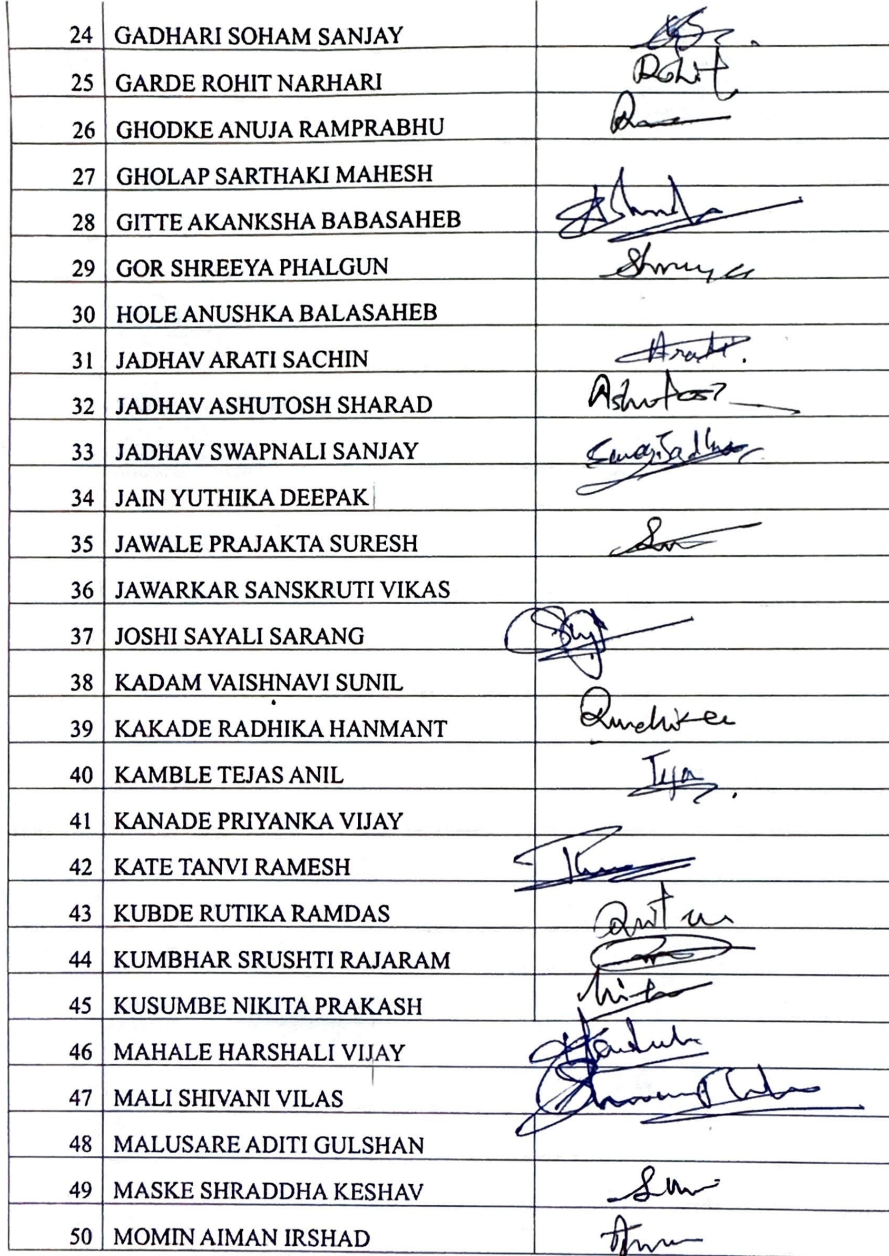 24 GADHARI SOHAM SANJAY
25 GARDE ROHIT NARHARI Rohit
26 GHODKE ANUJA RAMPRABHU
27 GHOLAP SARTHAKI MAHESH
28 GITTE AKANKSHA BABASAHEB
29 GOR SHREEYA PHALGUN
30 HOLE ANUSHKA BALASAHEB
31 JADHAV ARATI SACHIN Arati.
32 JADHAV ASHUTOSH SHARAD
33 JADHAV SWAPNALI SANJAY
34 JAIN YUTHIKA DEEPAK
35 JAWALE PRAJAKTA SURESH
36 JAWARKAR SANSKRUTI VIKAS
37 JOSHI SAYALI SARANG
38 KADAM VAISHNAVI SUNIL
39 KAKADE RADHIKA HANMANT
40 KAMBLE TEJAS ANIL
41 KANADE PRIYANKA VIJAY
42 KATE TANVI RAMESH
43 KUBDE RUTIKA RAMDAS
44 KUMBHAR SRUSHTI RAJARAM
45 KUSUMBE NIKITA PRAKASH
46 MAHALE HARSHALI VIJAY
47 MALI SHIVANI VILAS
48 MALUSARE ADITI GULSHAN
49 MASKE SHRADDHA KESHAV
50 MOMIN AIMAN IRSHAD